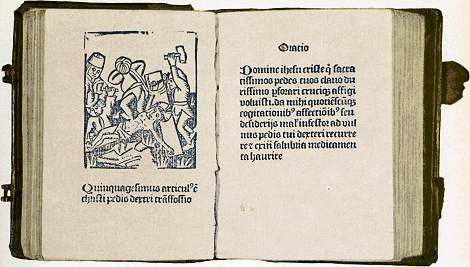 Quinquagesimus articul⁹ ē
christi pedis dextri trāsfossio
Oratio
Domine ihesu criste q̄ sacra
tissimos pedes tuos clauo du
rissimo ꝑforari cruciqꝫ affigi
voluisti. da mihi quotiēscūqꝫ
cogitationib⁹ affectiōib⁹ seu
desiderijs mal' infestor ad vul
nus pedis tui dexteri recurre
re et exin salubria medicamen
ta haurire